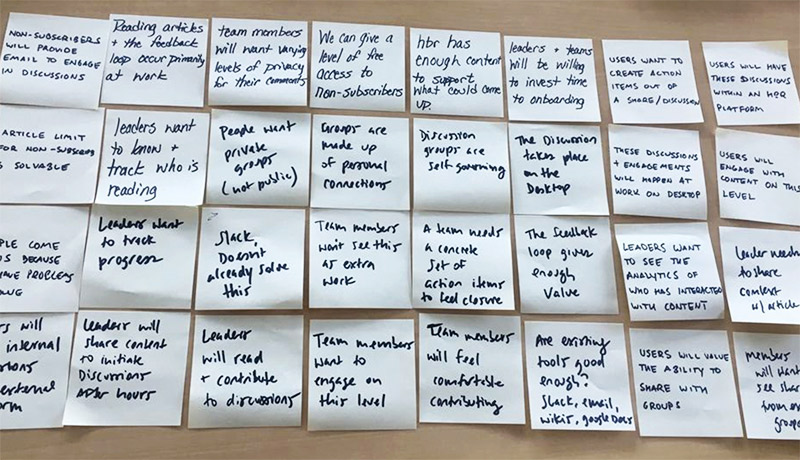 NON-SUBSCRIBERS
WILL PROVIDE
EMAIL TO ENGAGE
IN DISCUSSIONS
Reading articles
+ the feedback
loop occur primarily
at work
team members
will want varying
levels of privacy
for their comments
We can give a
level of free
access to
non-subscribers
hbr has
enough content
to support
what could come
up.
leaders + teams
will be willing
to invest time
to onboarding
USERS WANT TO
CREATE ACTION
ITEMS OUT OF
A SHARE/DISCUSSION
USERS WILL HAVE
THESE DISCUSSIONS
WITHIN AN HBR
PLATFORM
ARTICLE LIMIT
FOR NON-SUBSCRIB
SOLVABLE
leaders want
to know +
track who is
reading
People want
private
groups
(not public)
Groups are
made up
of personal
connections
Discussion
groups are
self governing
The Discussion
takes place
on the
Desktop
THESE DISCUSSIONS
+ ENGAGEMENTS
WILL HAPPEN AT
WORK ON DESKTOP
USERS WILL
ENGAGE WITH
CONTENT ON THIS
LEVEL
PLE COME
S BECAUSE
VE PROBLEMS
Leaders want
to track
progress
Slack,
Doesn't
already solve
this
Team members
won't see this
as extra
work
A team needs
a concrete
set of
action items
to feel closure
The feedback
loop gives
enough
value
LEADERS WANT
TO SEE THE
ANALYTICS OF
WHO HAS INTERACTED
WITH CONTENT
Leader needs
to share
content
w/ article
rs will
internal
external
rm
Leaders will
share content
to initiate
Discussions
After hours
Leaders
will read
+ contribute
to discussions
Team members
want to
engage on
this level
Team members
will feel
comfortable
contributing
Are existing
tools good
enough?
Slack, email,
wikis, google Docs
USERS WILL VALUE
THE ABILITY TO
SHARE WITH
GROUPS
Members
will want
see shar
from o
groups